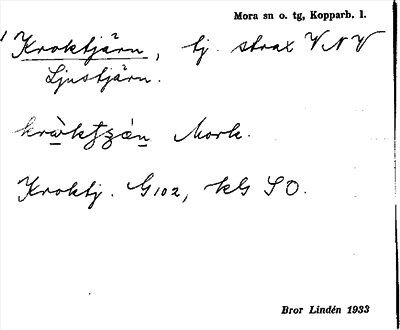 Mora sn o. tg, Kopparb. l.
Kroktjärn, tj. strax VNV
Ljustjärn.
Mork.
Kroktj. G102, kG SO.
Bror Lindén 1933